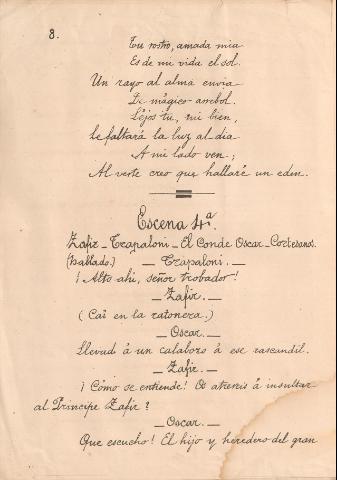 8.
Tu rostro, amada mia
Es de mi vida el sol.
Un rayo al alma envia
De mágico arrebol.
Léjos tu, mi bien,
Le faltará la luz al dia
A mi lado ven;
Al verte creo que hallaré un eden.
Escena 4ª.
Zafir - Trapaloni - El Conde Oscar - Cortesanos.
(hablado.) — Trapaloni. —
¡Alto ahi, señor trobador!
— Zafir. —
(Caí en la ratonera.)
— Oscar. —
Llevad á un calabozo á ese rascandil.
— Zafir. —
¡Cómo se entiende! Os atreveis á insultar
al Principe Zafir?
— Oscar. —
Que escucho! El hijo y heredero del gran